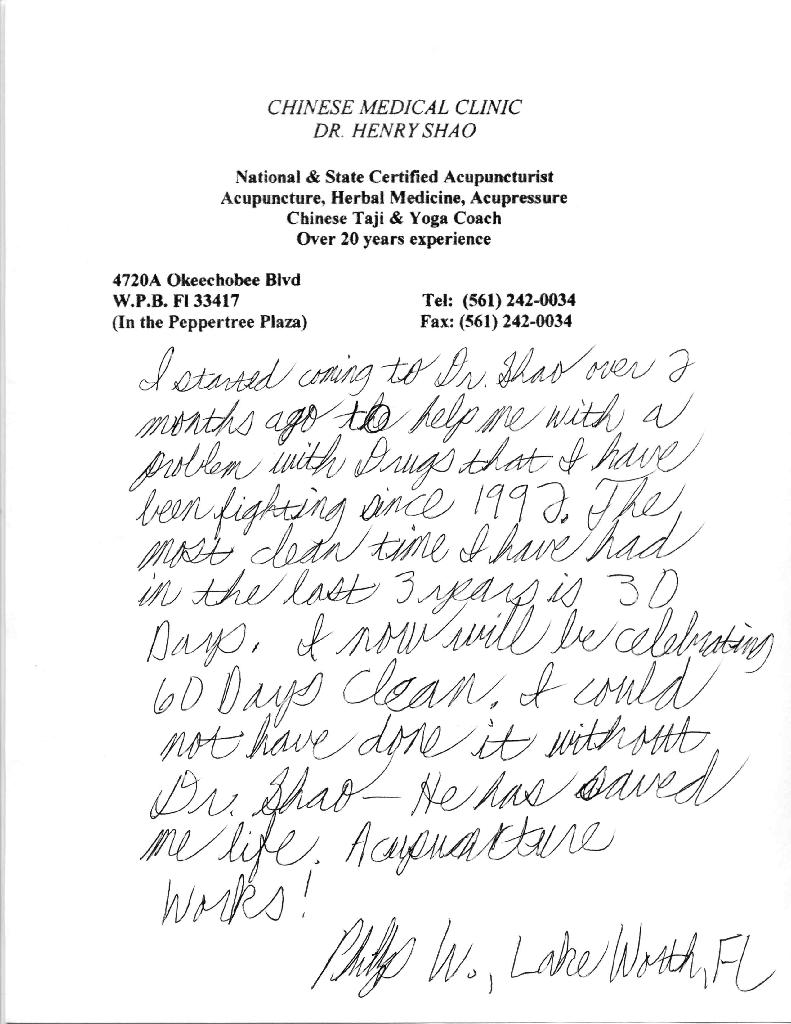 CHINESE MEDICAL CLINIC
DR. HENRY SHAO
National & State Certified Acupuncturist
Acupuncture, Herbal Medicine, Acupressure
Chinese Taji & Yoga Coach
Over 20 years experience
4720A Okeechobee Blvd
W.P.B. Fl 33417 Tel: (561) 242-0034
(In the Peppertree Plaza) Fax: (561) 242-0034
I started coming to Dr. Shao over 2
months ago to help me with a
problem with Drugs that I have
been fighting since 1992. The
most clean time I have had
in the last 3 years is 30
Days. I now will be celebrating
60 Days Clean. I could
not have done it without
Dr. Shao - He has saved
me life. Acupuncture
Works!
Philip W., Lake Worth, FL